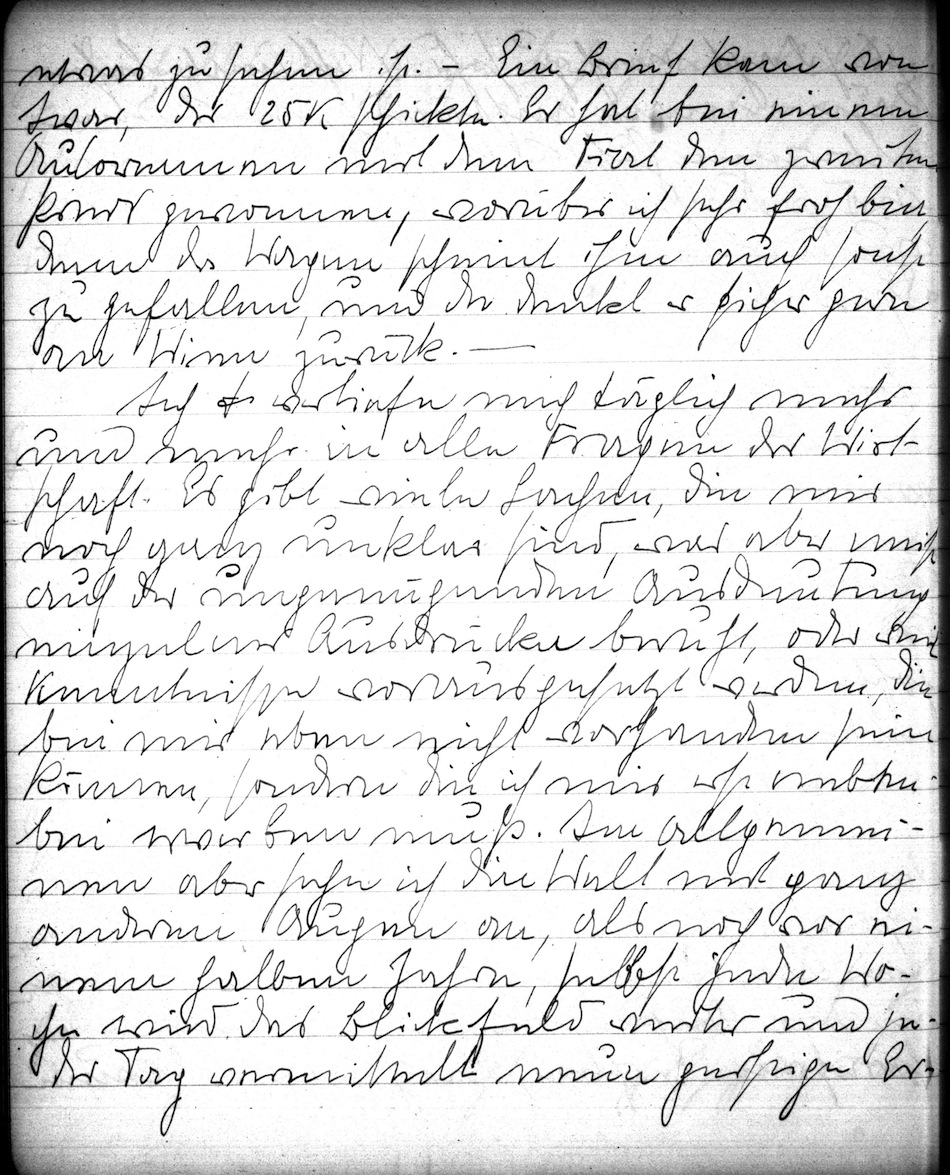 etwas zu sehen ist. – Ein Brief kam von
Ivar, der 25K schickte. Er hat bei einem
Autorennen mit dem Fiat den zweiten
Preis gewonnen, worüber ich sehr froh bin,
denn der Wagen scheint ihm auch sonst
zu gefallen, und da denkt er sicher gern
an Wien zurück. —
Ich vertiefe mich täglich mehr
und mehr in alle Fragen der Wirt-
schaft. Es gibt viele Sachen, die mir
noch ganz unklar sind, was aber meist
auf der ungenügenden Ausdeutung
einzelner Ausdrücke beruht, oder weil
Kenntnisse vorausgesetzt werden, die
bei mir eben nicht vorhanden sein
können, sondern die ich mir erst nebbei-
bei erwerben muß. Im allgemei-
nen aber sehe ich die Welt mit ganz
anderen Augen an, als noch vor ei-
nem halben Jahre, selbst jede Wo-
che wird das Blickfeld weiter und je-
der Tag vermittelt neue geistige Er-